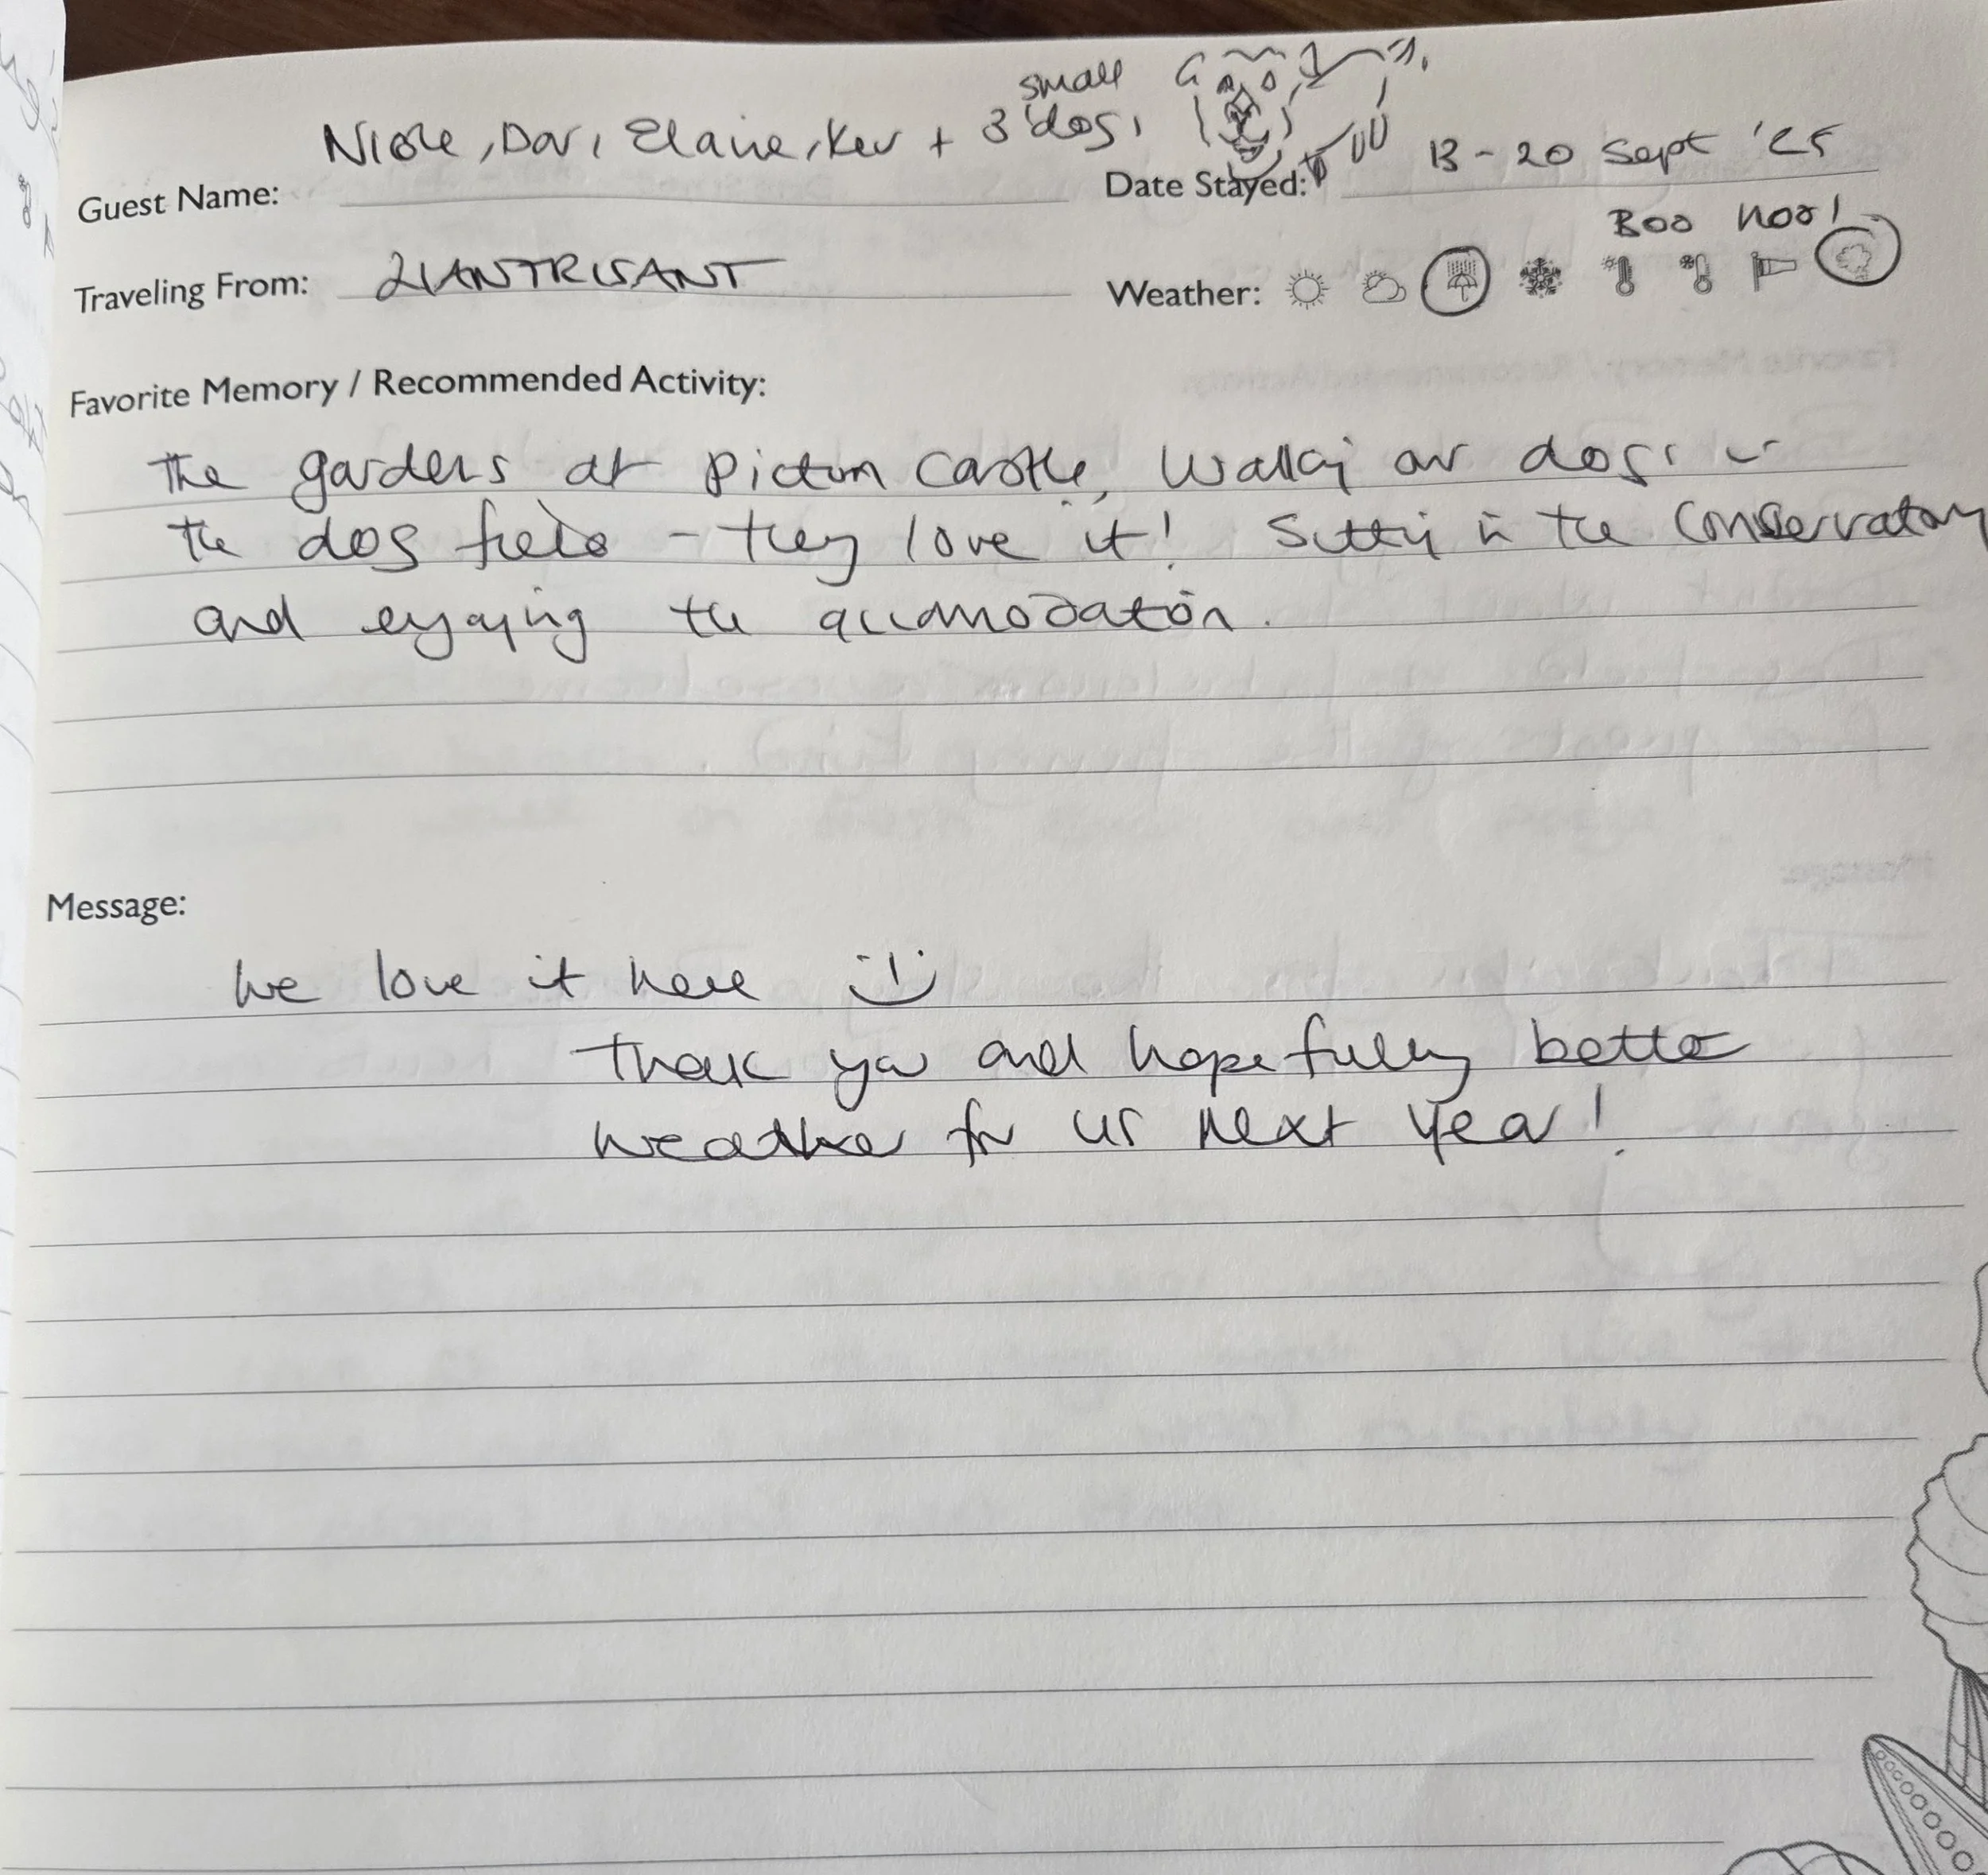 small
Nicole, Dav, Elaine, Kev + 3 dogs,
Guest Name:
Date Stayed: 13 - 20 Sept '25
Boo hoo!
Traveling From: LLANTRISANT
Weather:
Favorite Memory / Recommended Activity:
The gardens at Picton Castle, Walking our dogs in
the dog field - they love it! Sitting in the Conservatory
and enjoying the accomodation.
Message:
We love it here
Thank you and hopefully better
weather for us next year!